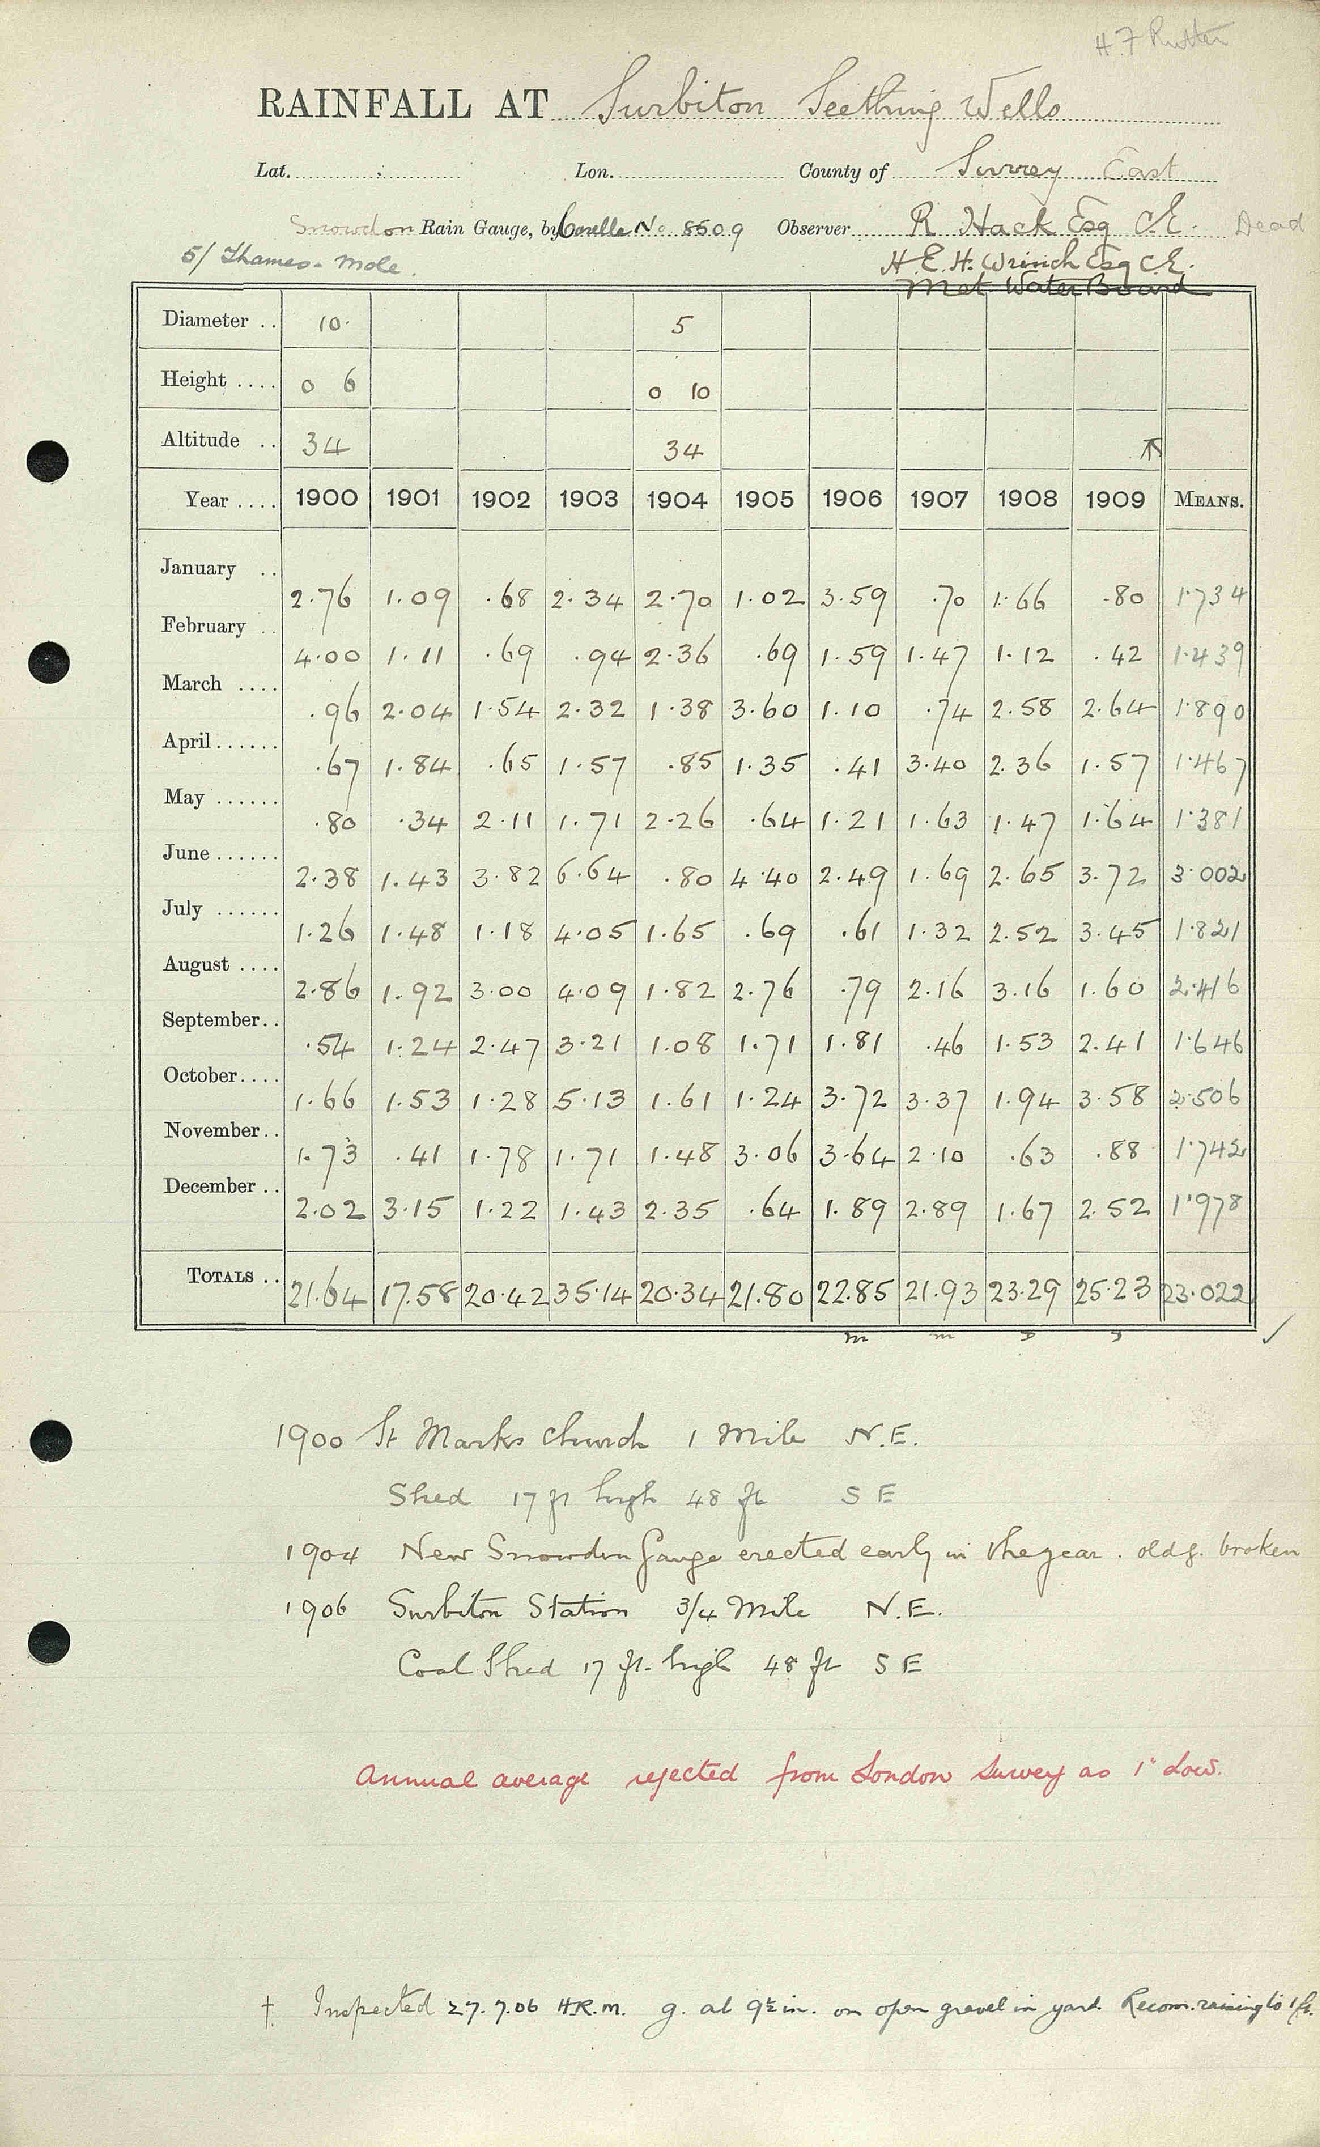 H. F Rutter
RAINFALL AT Surbiton Seething Wells
Lat. ; Lon. County of Surrey East
Snowdon Rain Gauge, by Casella No 8509 Observer R Hack Esq C.E. Dead
5/ Thames - Mole. H. E. H. Wrinch Esq C.E.
Met Water Board
Diameter .. 10 5
Height .... 0 6 0 10
Altitude .. 34 34
Year .... 1900 1901 1902 1903 1904 1905 1906 1907 1908 1909 MEANS.
January .. 2.76 1.09 .68 2.34 2.70 1.02 3.59 .70 1.66 .80 1.734
February .. 4.00 1.11 .69 .94 2.36 .69 1.59 1.47 1.12 .42 1.439
March .... .96 2.04 1.54 2.32 1.38 3.60 1.10 .74 2.58 2.64 1.890
April ...... .67 1.84 .65 1.57 .85 1.35 .41 3.40 2.36 1.57 1.467
May ...... .80 .34 2.11 1.71 2.26 .64 1.21 1.63 1.47 1.64 1.381
June ...... 2.38 1.43 3.82 6.64 .80 4.40 2.49 1.69 2.65 3.72 3.002
July ...... 1.26 1.48 1.18 4.05 1.65 .69 .61 1.32 2.52 3.45 1.821
August .... 2.86 1.92 3.00 4.09 1.82 2.76 .79 2.16 3.16 1.60 2.416
September.. .54 1.24 2.47 3.21 1.08 1.71 1.81 .46 1.53 2.41 1.646
October.... 1.66 1.53 1.28 5.13 1.61 1.24 3.72 3.37 1.94 3.58 2.506
November.. 1.73 .41 1.78 1.71 1.48 3.06 3.64 2.10 .63 .88 1.742
December .. 2.02 3.15 1.22 1.43 2.35 .64 1.89 2.89 1.67 2.52 1.978
TOTALS .. 21.64 17.58 20.42 35.14 20.34 21.80 22.85 21.93 23.29 25.23 23.022
m m
1900 St Marks Church 1 Mile N.E.
Shed 17 ft high 48 ft S E
1904 New Snowdon Gauge erected early in the year. old g. broken
1906 Surbiton Station 3/4 Mile N.E.
Coal Shed 17 ft. high 48 ft S E
Annual average rejected from London Survey as 1" Low.
† Inspected 27.7.06 H.R.M. g. at 9½ in. on open gravel in yard. Recom. raising to 1 ft.